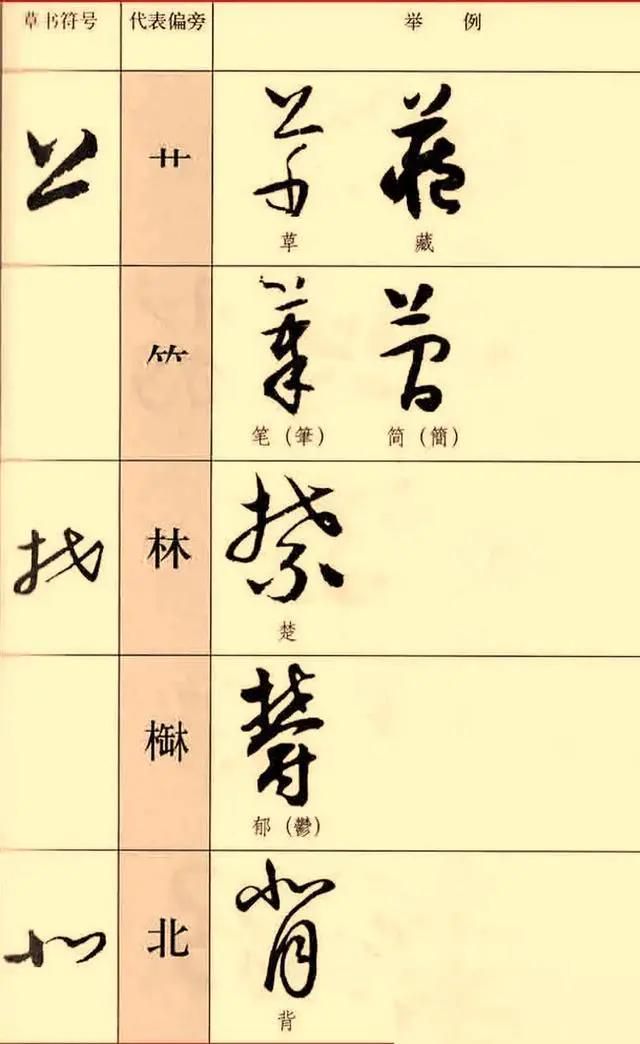 草书符号 代表偏旁 举 例
艹
草 藏
⺮
笔（筆） 简（簡）
林
楚
郁（鬱）
北
背